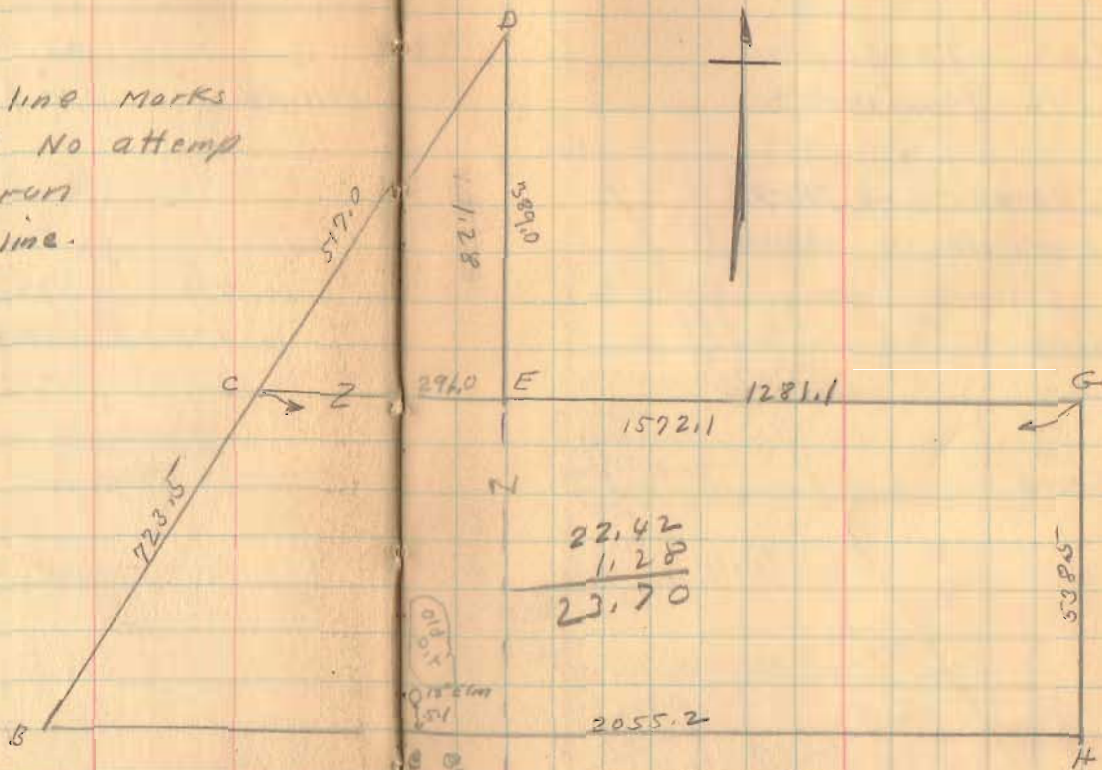 D
line Marks
No attemp
run
line.
517.0
1.28
389.0
C
Z
291.0
E
1281.1
G
1572.1
723.5
Z
22.42
1.28
23.70
538.5
old
18" Elm
51
B
2055.2
H